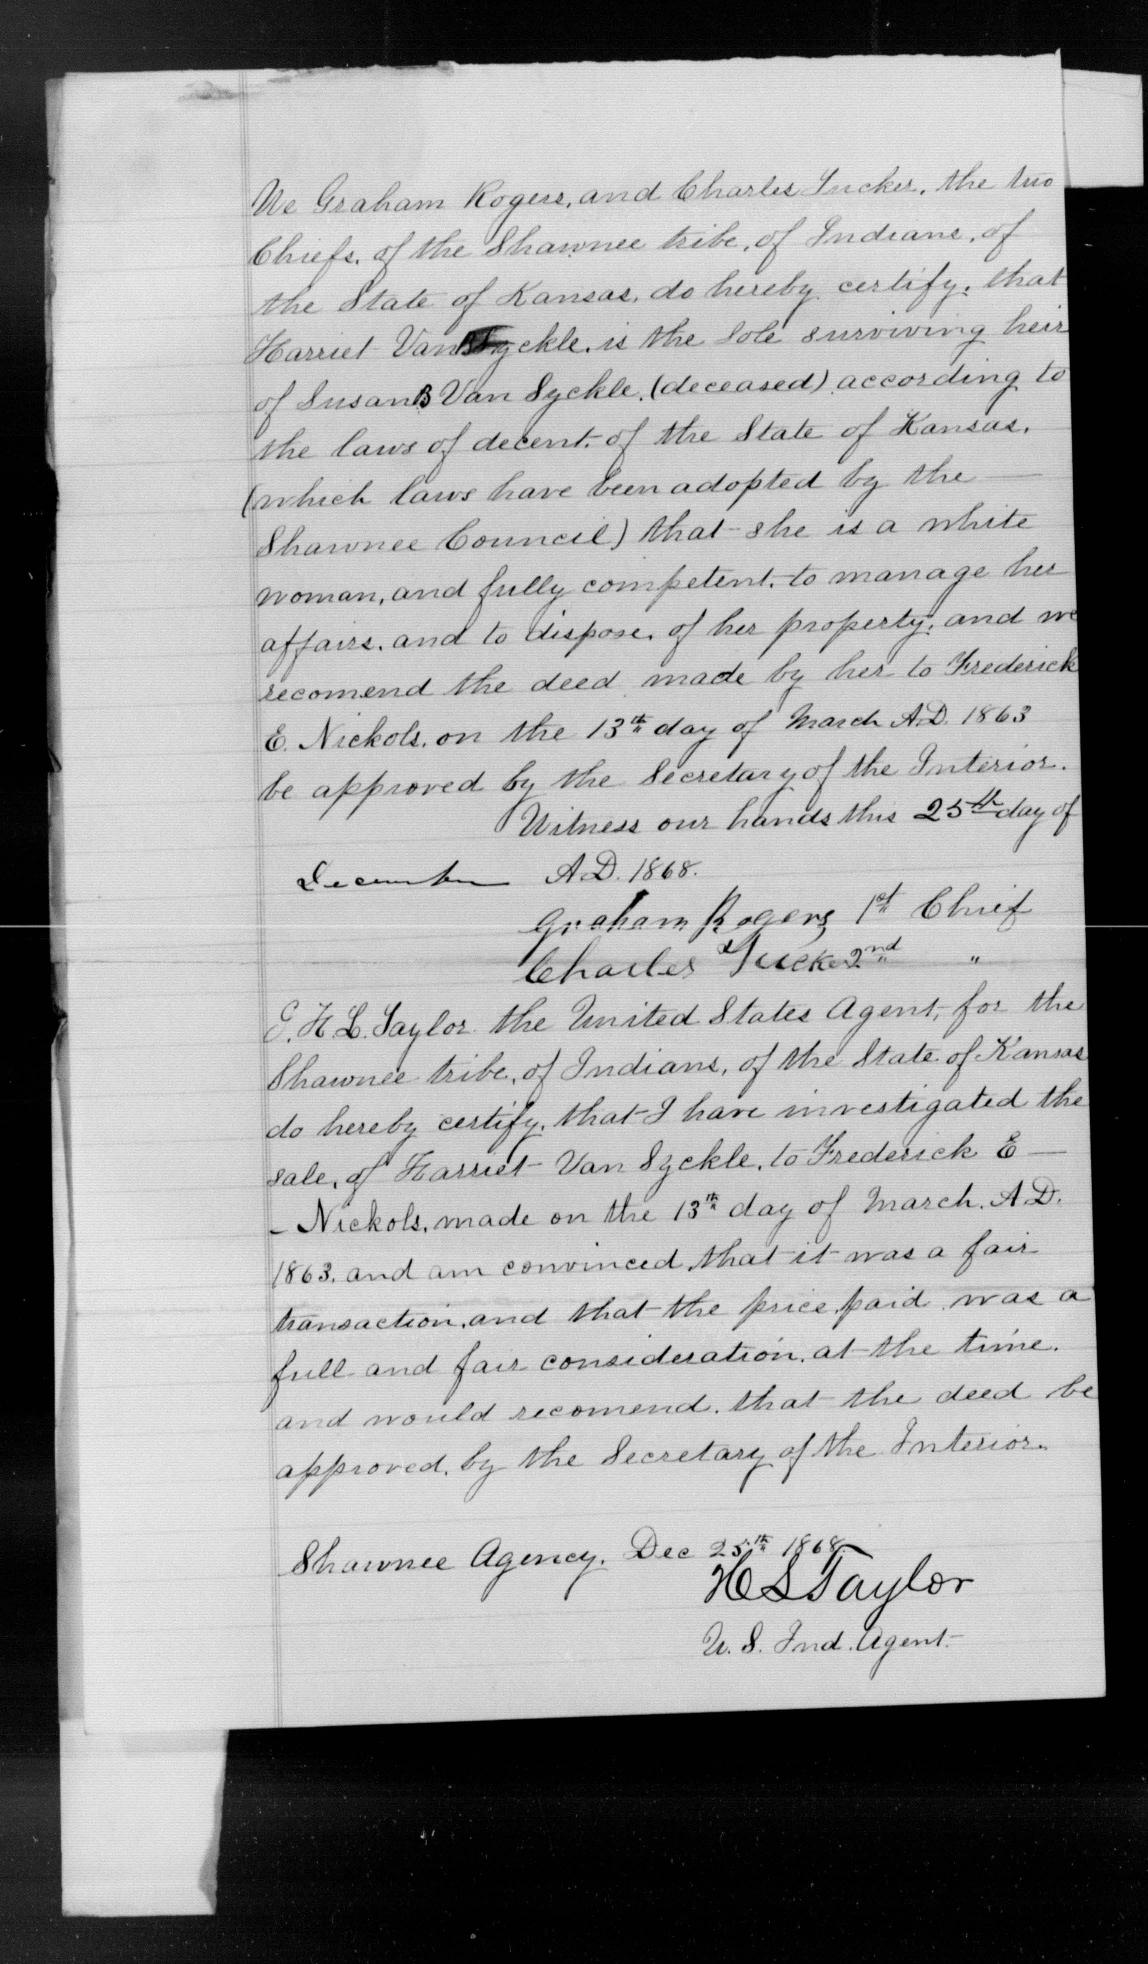 We Graham Rogers, and Charles Tucker, the two
Chiefs, of the Shawnee tribe, of Indians, of
the State of Kansas, do hereby certify, that
Harriet Van Syckle, is the sole surviving heir
of Susan B Van Syckle, (deceased) according to
the laws of decent, of the State of Kansas,
(which laws have been adopted by the —
Shawnee Council) that she is a white
woman, and fully competent, to manage her
affairs, and to dispose, of her property, and we
recomend the deed made by her to Frederick
E. Nickols, on the 13th day of March A.D. 1863
be approved by the Secretary of the Interior.
Witness our hands this 25th day of
December A.D. 1868.
Graham Rogers 1st Chief
Charles Tucker 2nd "
I, H. L. Taylor the United States Agent, for the
Shawnee tribe, of Indians, of the State of Kansas
do hereby certify, that I have investigated the
sale, of Harriet Van Syckle, to Frederick E —
- Nickols, made on the 13th day of March, A.D.
1863, and am convinced, that it was a fair
transaction, and that the price, paid was a
full and fair consideration, at the time,
and would recomend, that the deed be
approved, by the Secretary of the Interior.
Shawnee Agency, Dec 25th 1868.
H L Taylor
U. S. Ind. Agent.